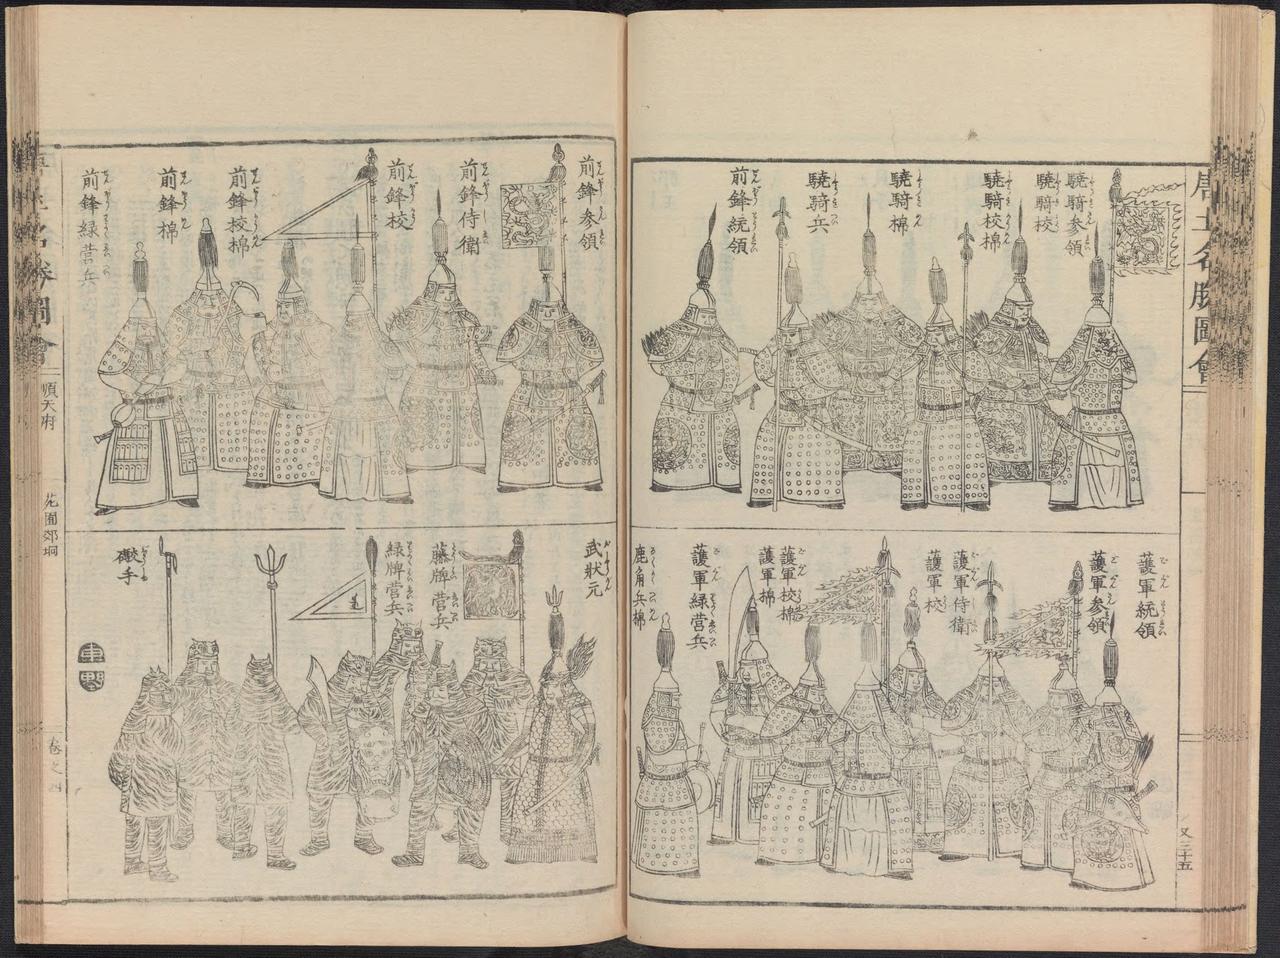 唐土名勝圖會
驍騎参領
驍騎校
驍騎校棉
驍騎棉
驍騎兵
前鋒統領
護軍統領
護軍参領
護軍侍衛
護軍校
護軍校棉
護軍棉
護軍綠営兵
鹿角兵棉
又三十五
前鋒参領
前鋒侍衛
前鋒校
前鋒校棉
前鋒棉
前鋒緑営兵
武狀元
藤牌営兵
緑牌営兵
礮手
名勝圖會
順天府
苑囿郊坰
卷之四